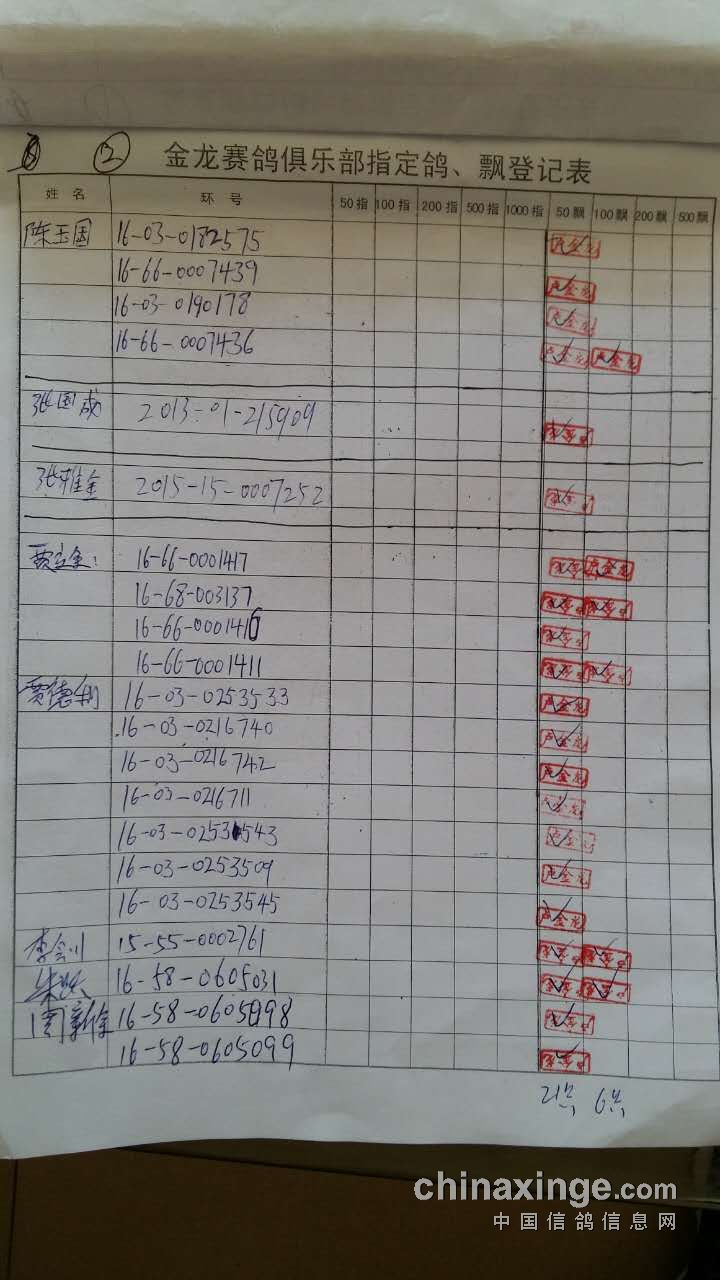 ②
金龙赛鸽俱乐部指定鸽、飘登记表
姓名 环号 50指 100指 200指 500指 1000指 50飘 100飘 200飘 500飘
陈玉国 16-03-0182575
16-66-0007439 卢金龙
16-03-0190178 卢金龙
16-66-0007436 卢金龙 卢金龙
张国成 2013-01-215909
张雅金 2015-15-0007252
16-66-0001417 卢金龙
16-68-003137
16-66-0001416
16-66-0001411
贾德利 16-03-0253533 卢金龙
16-03-0216740 卢金龙
16-03-0216742 卢金龙
16-03-0216711 卢金龙
16-03-0253543 卢金龙
16-03-0253509 卢金龙
16-03-0253545 卢金龙
李会川 15-55-0002761
朱跃 16-58-0605031
周新佳 16-58-0605098
16-58-0605099
21 6
chinaxinge.com
中国信鸽信息网